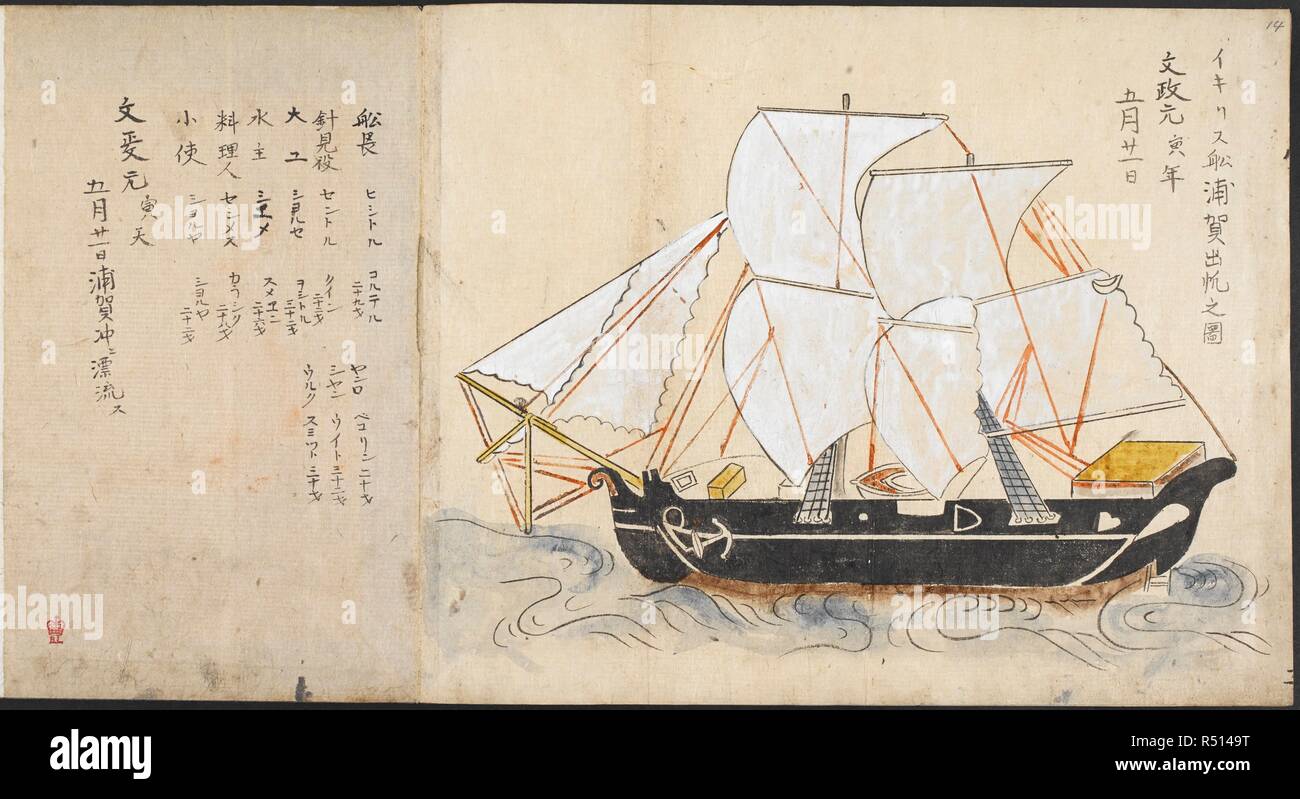 14
イキリス舩浦賀出帆之圖
文政元寅年
五月廿一日
舩長 ヒシトル コルテル 二十九才
針見役 セントル クイン 二十二才
大工 シヨルセ ヲシトル 三十二才
水主 シエメ スメエン 二十六才
料理人 セシメス カラシク 二十九才
小使 シヨルヤ シヨルヤ 二十二才
ヤシロ ベコリン 二十才
シヤン ウイト 三十二才
ウルク スミツト 三十才
寅天
五月廿一日浦賀沖ニ漂流ス
alamy
Image ID: R5149T
www.alamy.com